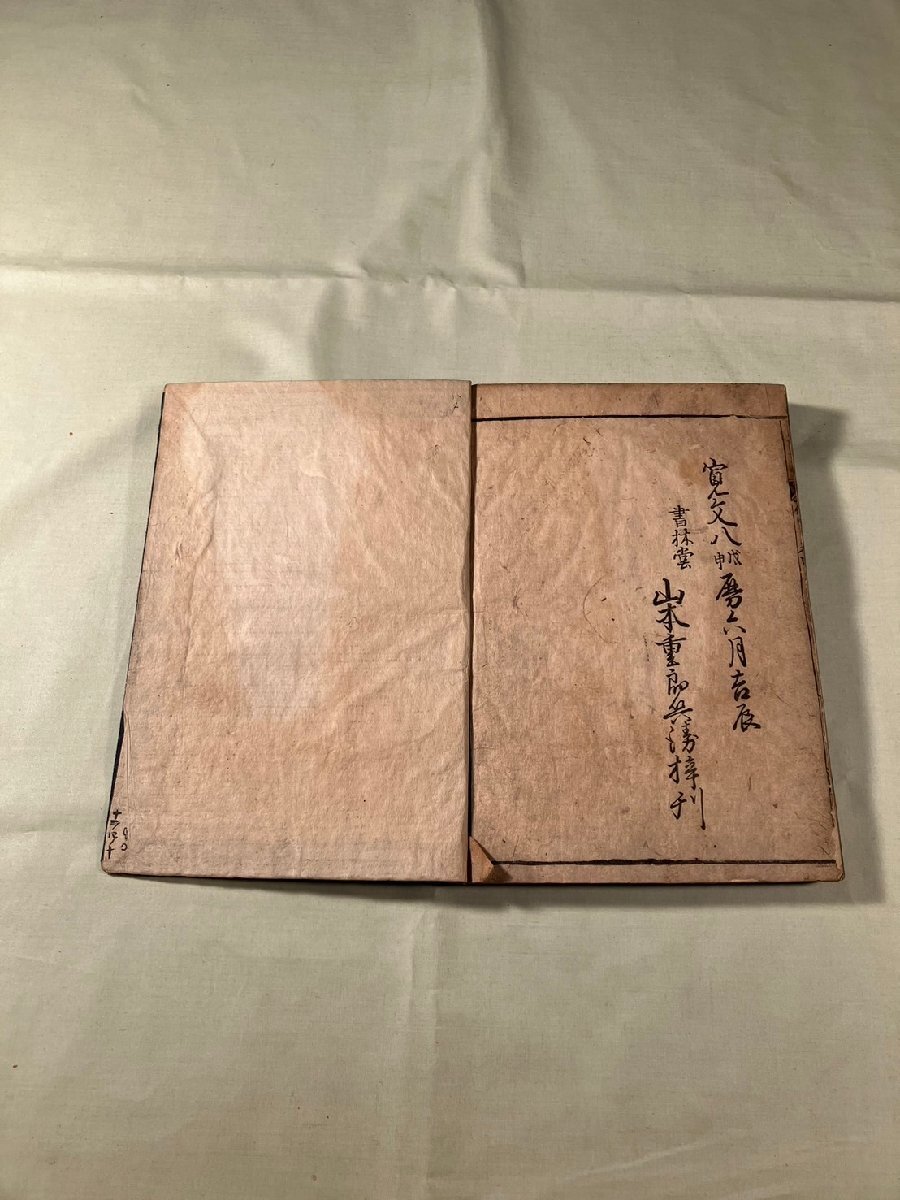 寛文八戊申暦六月吉辰
書林堂 山本重郎兵衛梓刊